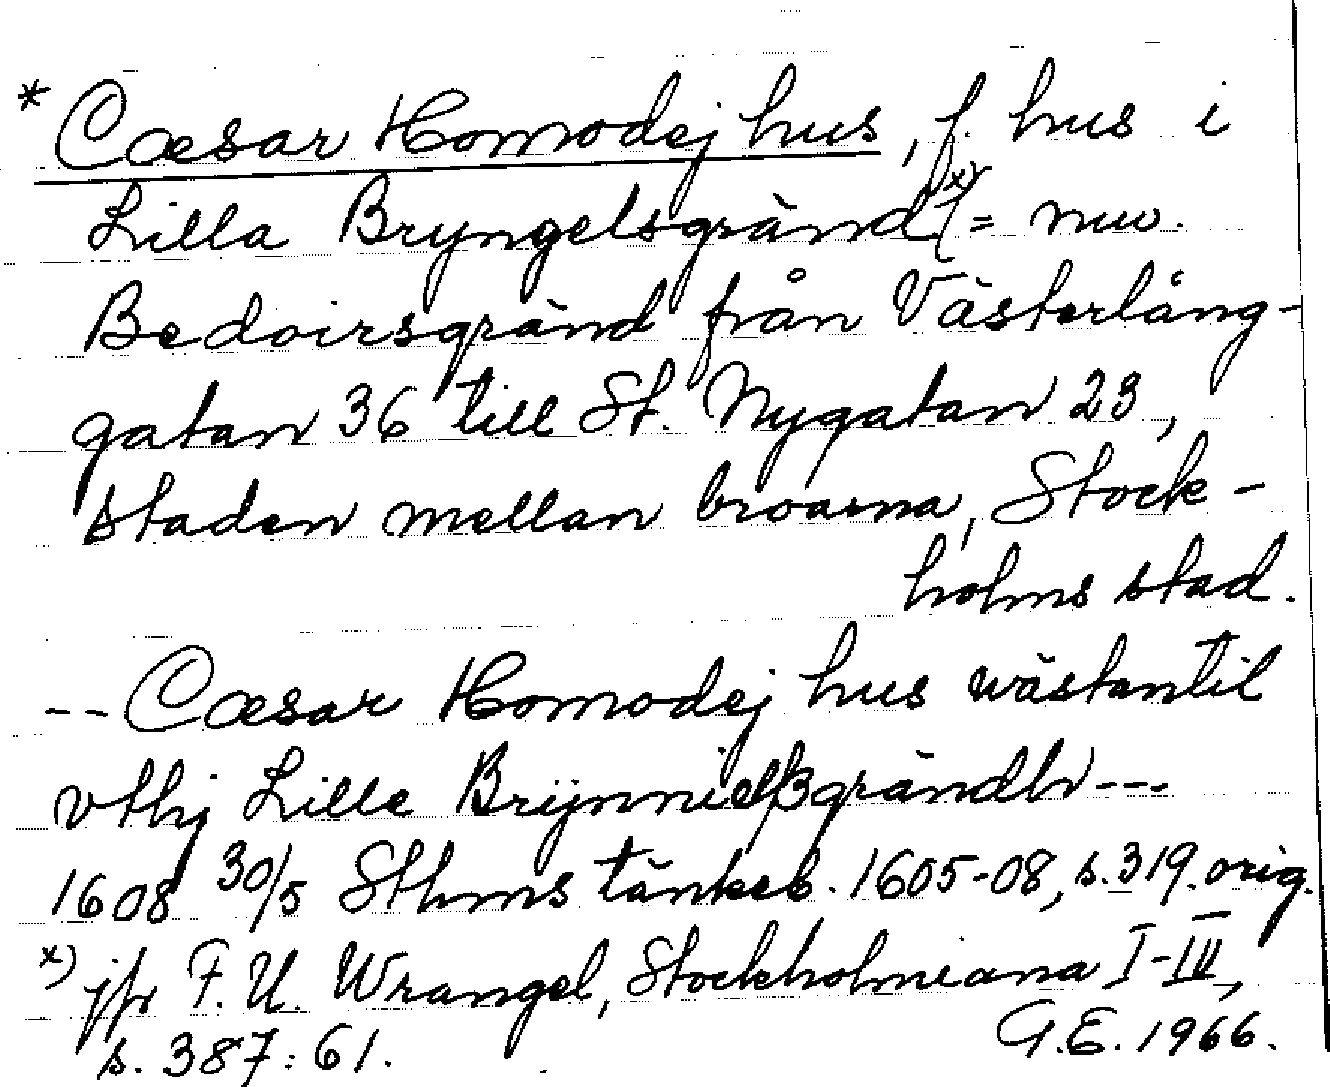 * Cæsar Homodej hus, f. hus i
Lilla Bryngelsgränd x) (= nuv.
Bedoirsgränd från Västerlång-
gatan 36 till St. Nygatan 23,
staden mellan broarna, Stock-
holms stad.
-- Cæsar Homodej hus wästantil
vthj Lille Brÿnnielßgrändh ---
1608 30/5 Sthms tänkeb. 1605-08, s. 319. orig.
x) jfr F. U. Wrangel, Stockholmiana I-III,
s. 387: 61. G.E. 1966.